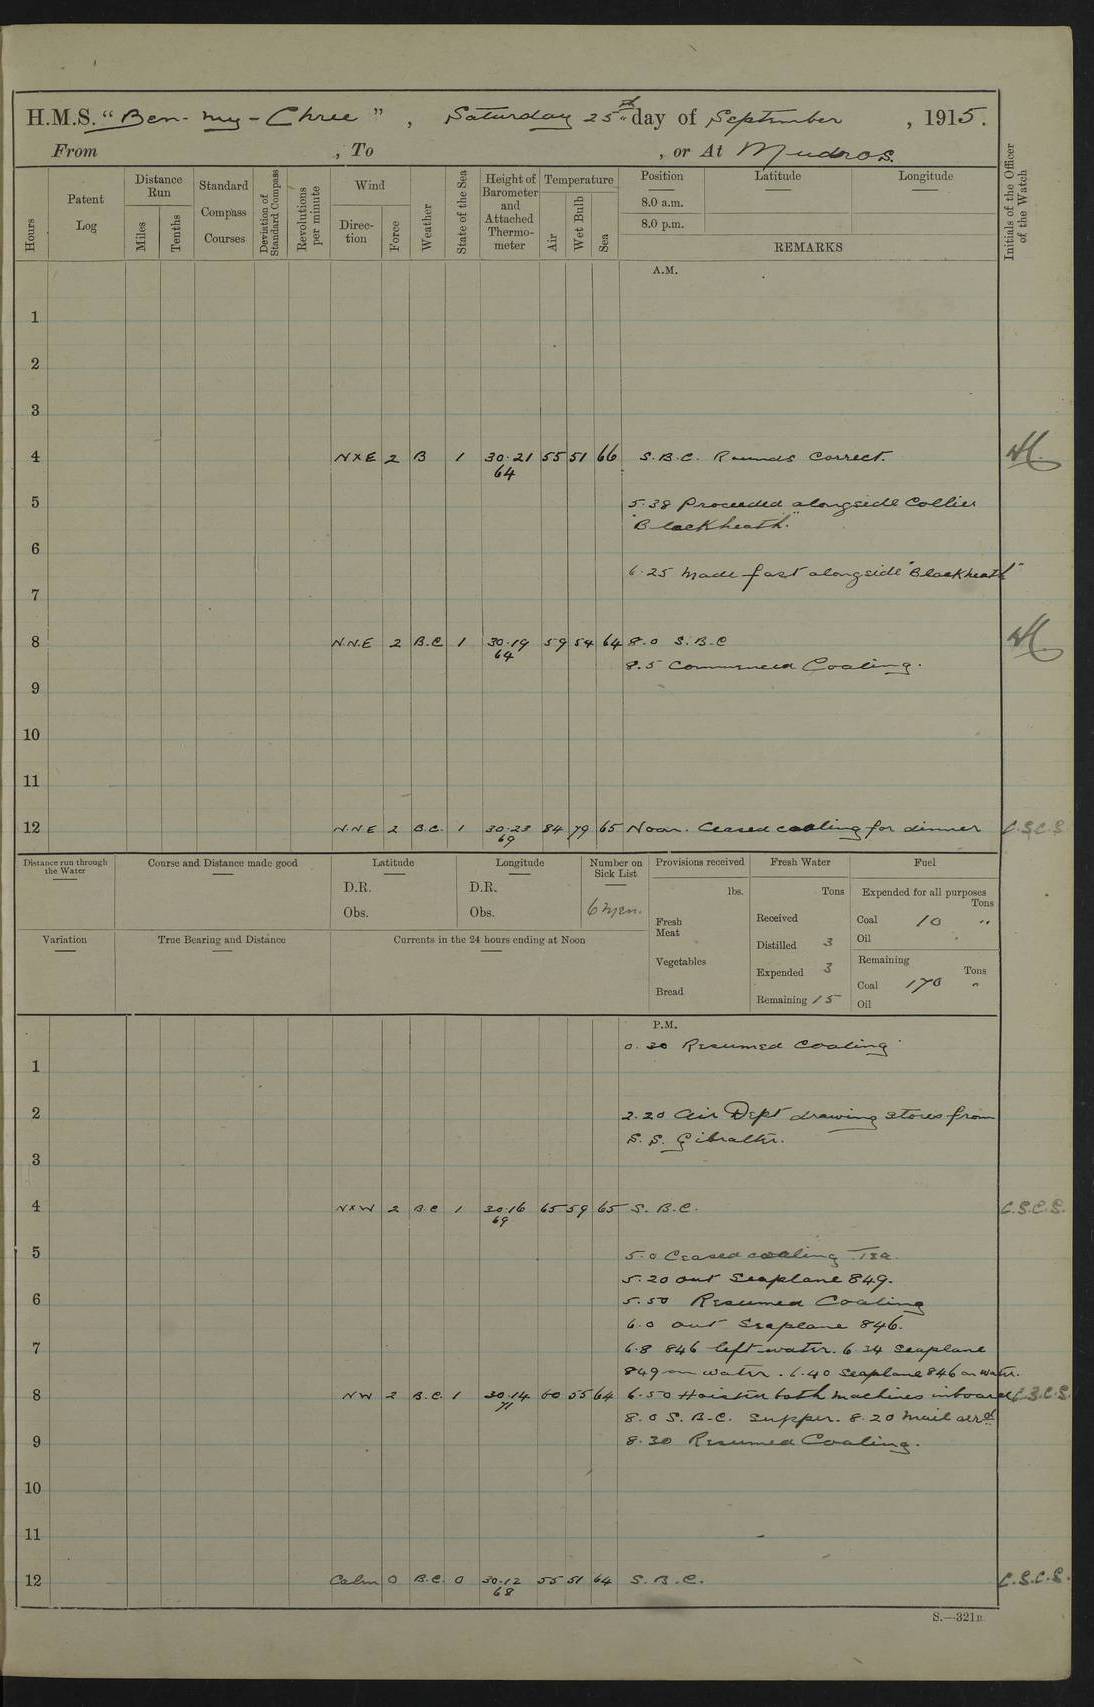 H.M.S. "Ben-my-Chree", Saturday 25th day of September, 1915.
From , To , or At Mudros.
Hours
Patent Log
Distance Run
Miles
Tenths
Standard Compass Courses
Deviation of Standard Compass
Revolutions per minute
Wind
Direction
Force
Weather
State of the Sea
Height of Barometer and Attached Thermometer
Temperature
Air
Wet Bulb
Sea
Position
8.0 a.m.
8.0 p.m.
Latitude
Longitude
REMARKS
Initials of the Officer of the Watch
A.M.
1
2
3
4 NXE 2 B 1 30.21 55 51 66 S.B.C. Rounds Correct.
64
5 5.38 Proceeded alongside Collier
"Blackheath."
6
6.25 Made fast alongside "Blackheath"
7
8 N.N.E 2 B.C 1 30.19 59 54 64 8.0 S.B.C
64
8.5 Commenced Coaling.
9
10
11
12 N.N.E 2 B.C. 1 30.23 84 79 65 Noon. Ceased coaling for dinner C.S.C.S
69
Distance run through the Water
Course and Distance made good
Latitude
D.R.
Obs.
Longitude
D.R.
Obs.
Number on Sick List
6 men.
Provisions received
lbs.
Fresh Meat
Vegetables
Bread
Fresh Water
Tons
Received
Distilled 3
Expended 3
Remaining 15
Fuel
Expended for all purposes
Tons
Coal 10 "
Oil
Remaining
Tons
Coal 170 "
Oil
Variation
True Bearing and Distance
Currents in the 24 hours ending at Noon
P.M.
0.30 Resumed Coaling
1
2 2.20 Air Dept drawing stores from
S.S. Gibralter.
3
4 NXW 2 B.C 1 30.16 65 59 65 S.B.C. C.S.C.S.
69
5 5.0 Ceased coaling Tea.
5.20 out Seaplane 849.
6 5.50 Resumed Coaling
6.0 out Seaplane 846.
7 6.8 846 left water. 6.34 Seaplane
849 on water. 6.40 Seaplane 846 on water.
8 NW 2 B.C. 1 30.14 60 55 64 6.50 Hoisted both machines inboard C.S.C.S.
71
8.0 S.B.C. Supper. 8.20 Mail arrd
9 8.30 Resumed Coaling.
10
11
12 Calm 0 B.C. 0 30.12 55 51 64 S.B.C. C.S.C.S.
68
S.—321B